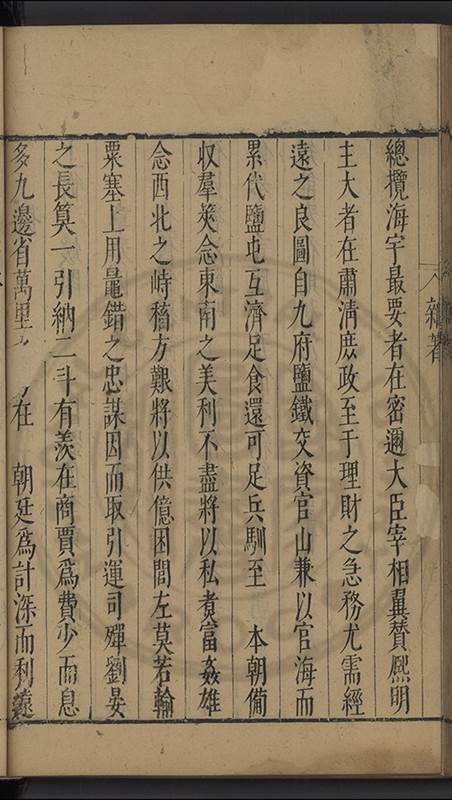 雜著
總攬海宇最要者在密邇大臣宰相翼贊熈明
主大者在肅淸庶政至于理財之急務尤需經
遠之良圖自九府鹽鐵交資官山兼以官海而
累代鹽屯互濟足食還可足兵馴至 本朝備
収羣筴念東南之美利不盡將以私煮富姦雄
念西北之峙穡方艱將以供億困閭左莫若輸
粟塞上用鼂錯之忠謀因而取引運司殫劉晏
之長筭一引納二斗有羡在商賈爲費少而息
多九邊省萬里 在 朝廷爲計深而利遠